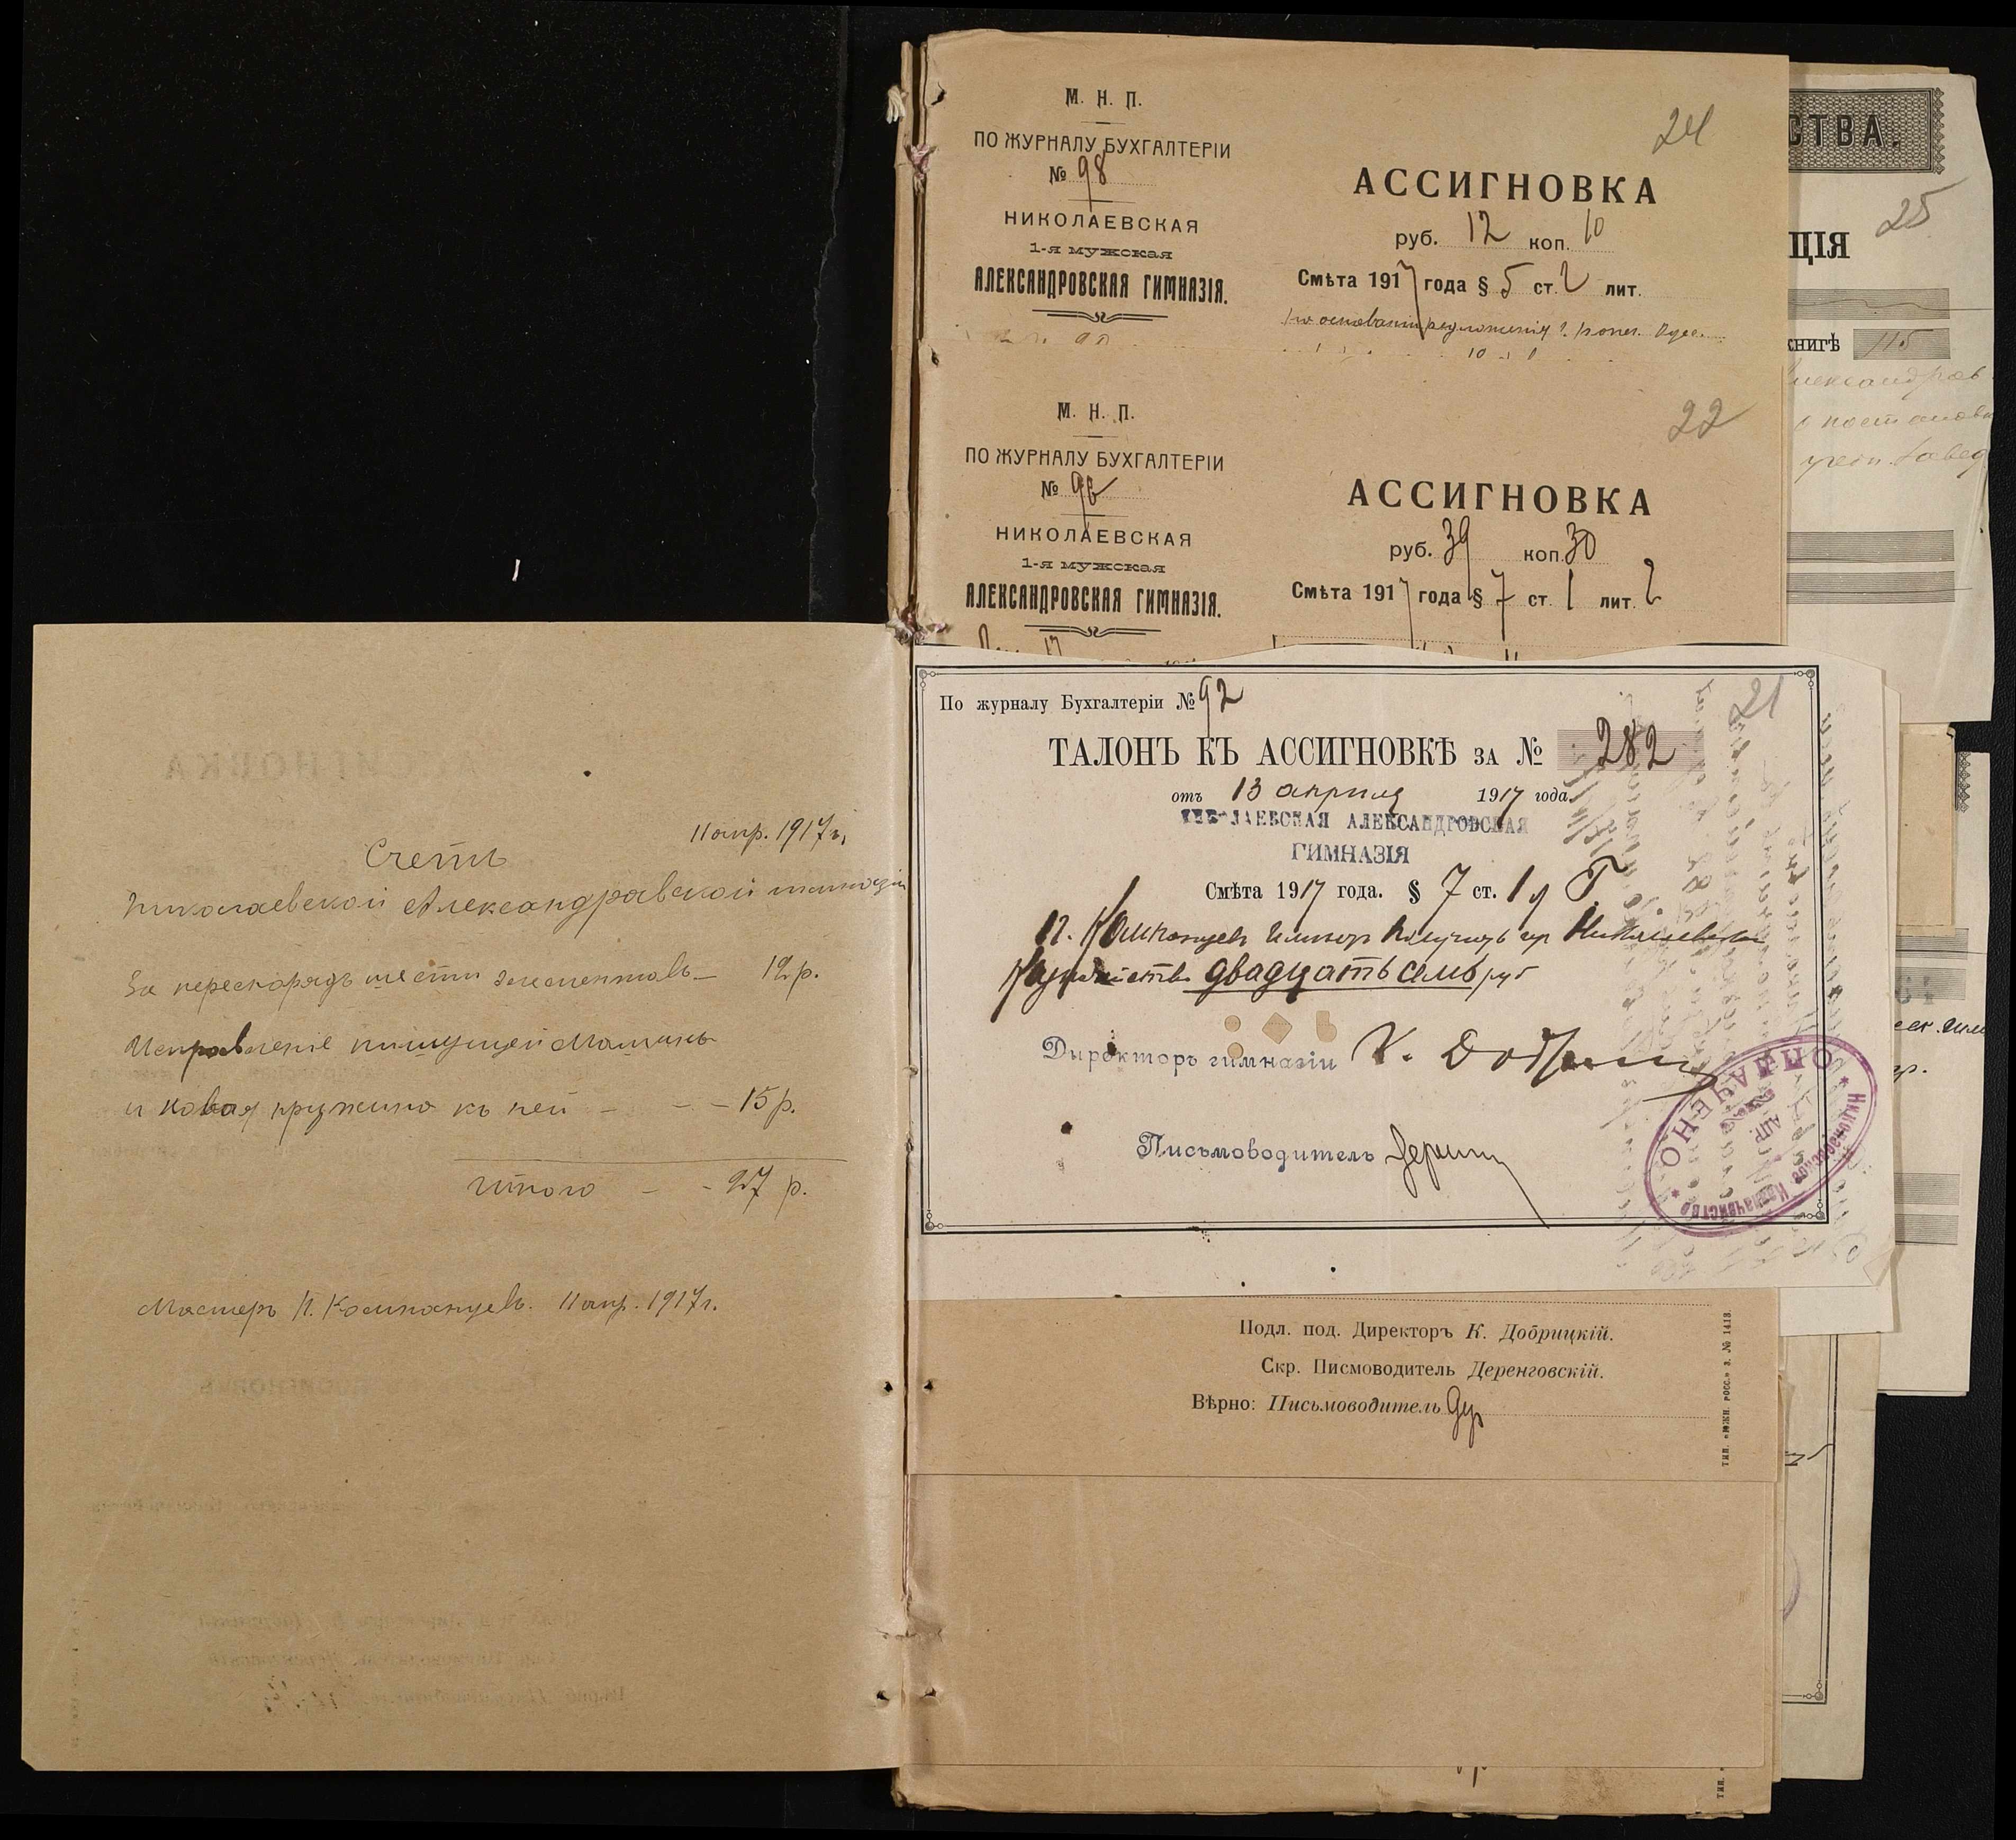 11 апр. 1917 г.
Счетъ
Николаевской Александравской гимназіи
За перезарядъ шести элементовъ — 12 р.
Исправленіе пишущей машины
и новая пружина къ ней — — — 15 р.
Итого — — 27 р.
Мастеръ П. Компанцевъ. 11 апр. 1917 г.
24
М. Н. П.
ПО ЖУРНАЛУ БУХГАЛТЕРІИ
№ 98
НИКОЛАЕВСКАЯ
1-я мужская
АЛЕКСАНДРОВСКАЯ ГИМНАЗІЯ.
АССИГНОВКА
руб. 12 коп. 10
Смѣта 1917 года § 5 ст. 2 лит.
На основаніи предложенія г. Попеч. Одес.
22
М. Н. П.
ПО ЖУРНАЛУ БУХГАЛТЕРІИ
№ 96
НИКОЛАЕВСКАЯ
1-я мужская
АЛЕКСАНДРОВСКАЯ ГИМНАЗІЯ.
АССИГНОВКА
руб. 39 коп. 30
Смѣта 1917 года § 7 ст. 1 лит. 2
21
По журналу Бухгалтеріи № 92
ТАЛОНЪ КЪ АССИГНОВКѢ ЗА № 282
отъ 13 апреля 1917 года
НИКОЛАЕВСКАЯ АЛЕКСАНДРОВСКАЯ
ГИМНАЗІЯ
Смѣта 1917 года. § 7 ст. 1 л Г.
П. Компанцевъ имѣетъ получить изъ Николаевскаго
Казначейства двадцать семь руб
Директоръ гимназіи К. Добрицкій
Письмоводитель
ОПЛАЧЕНО
АПР.
Николаевское Казначейство
Подл. под. Директоръ К. Добрицкій.
Скр. Писмоводитель Деренговскій.
Вѣрно: Письмоводитель Дер
ТИП. «ЮЖН. РОСС.» З. № 1413.
ТИП.
СТВА.
25
ЦІЯ
книгѣ 115